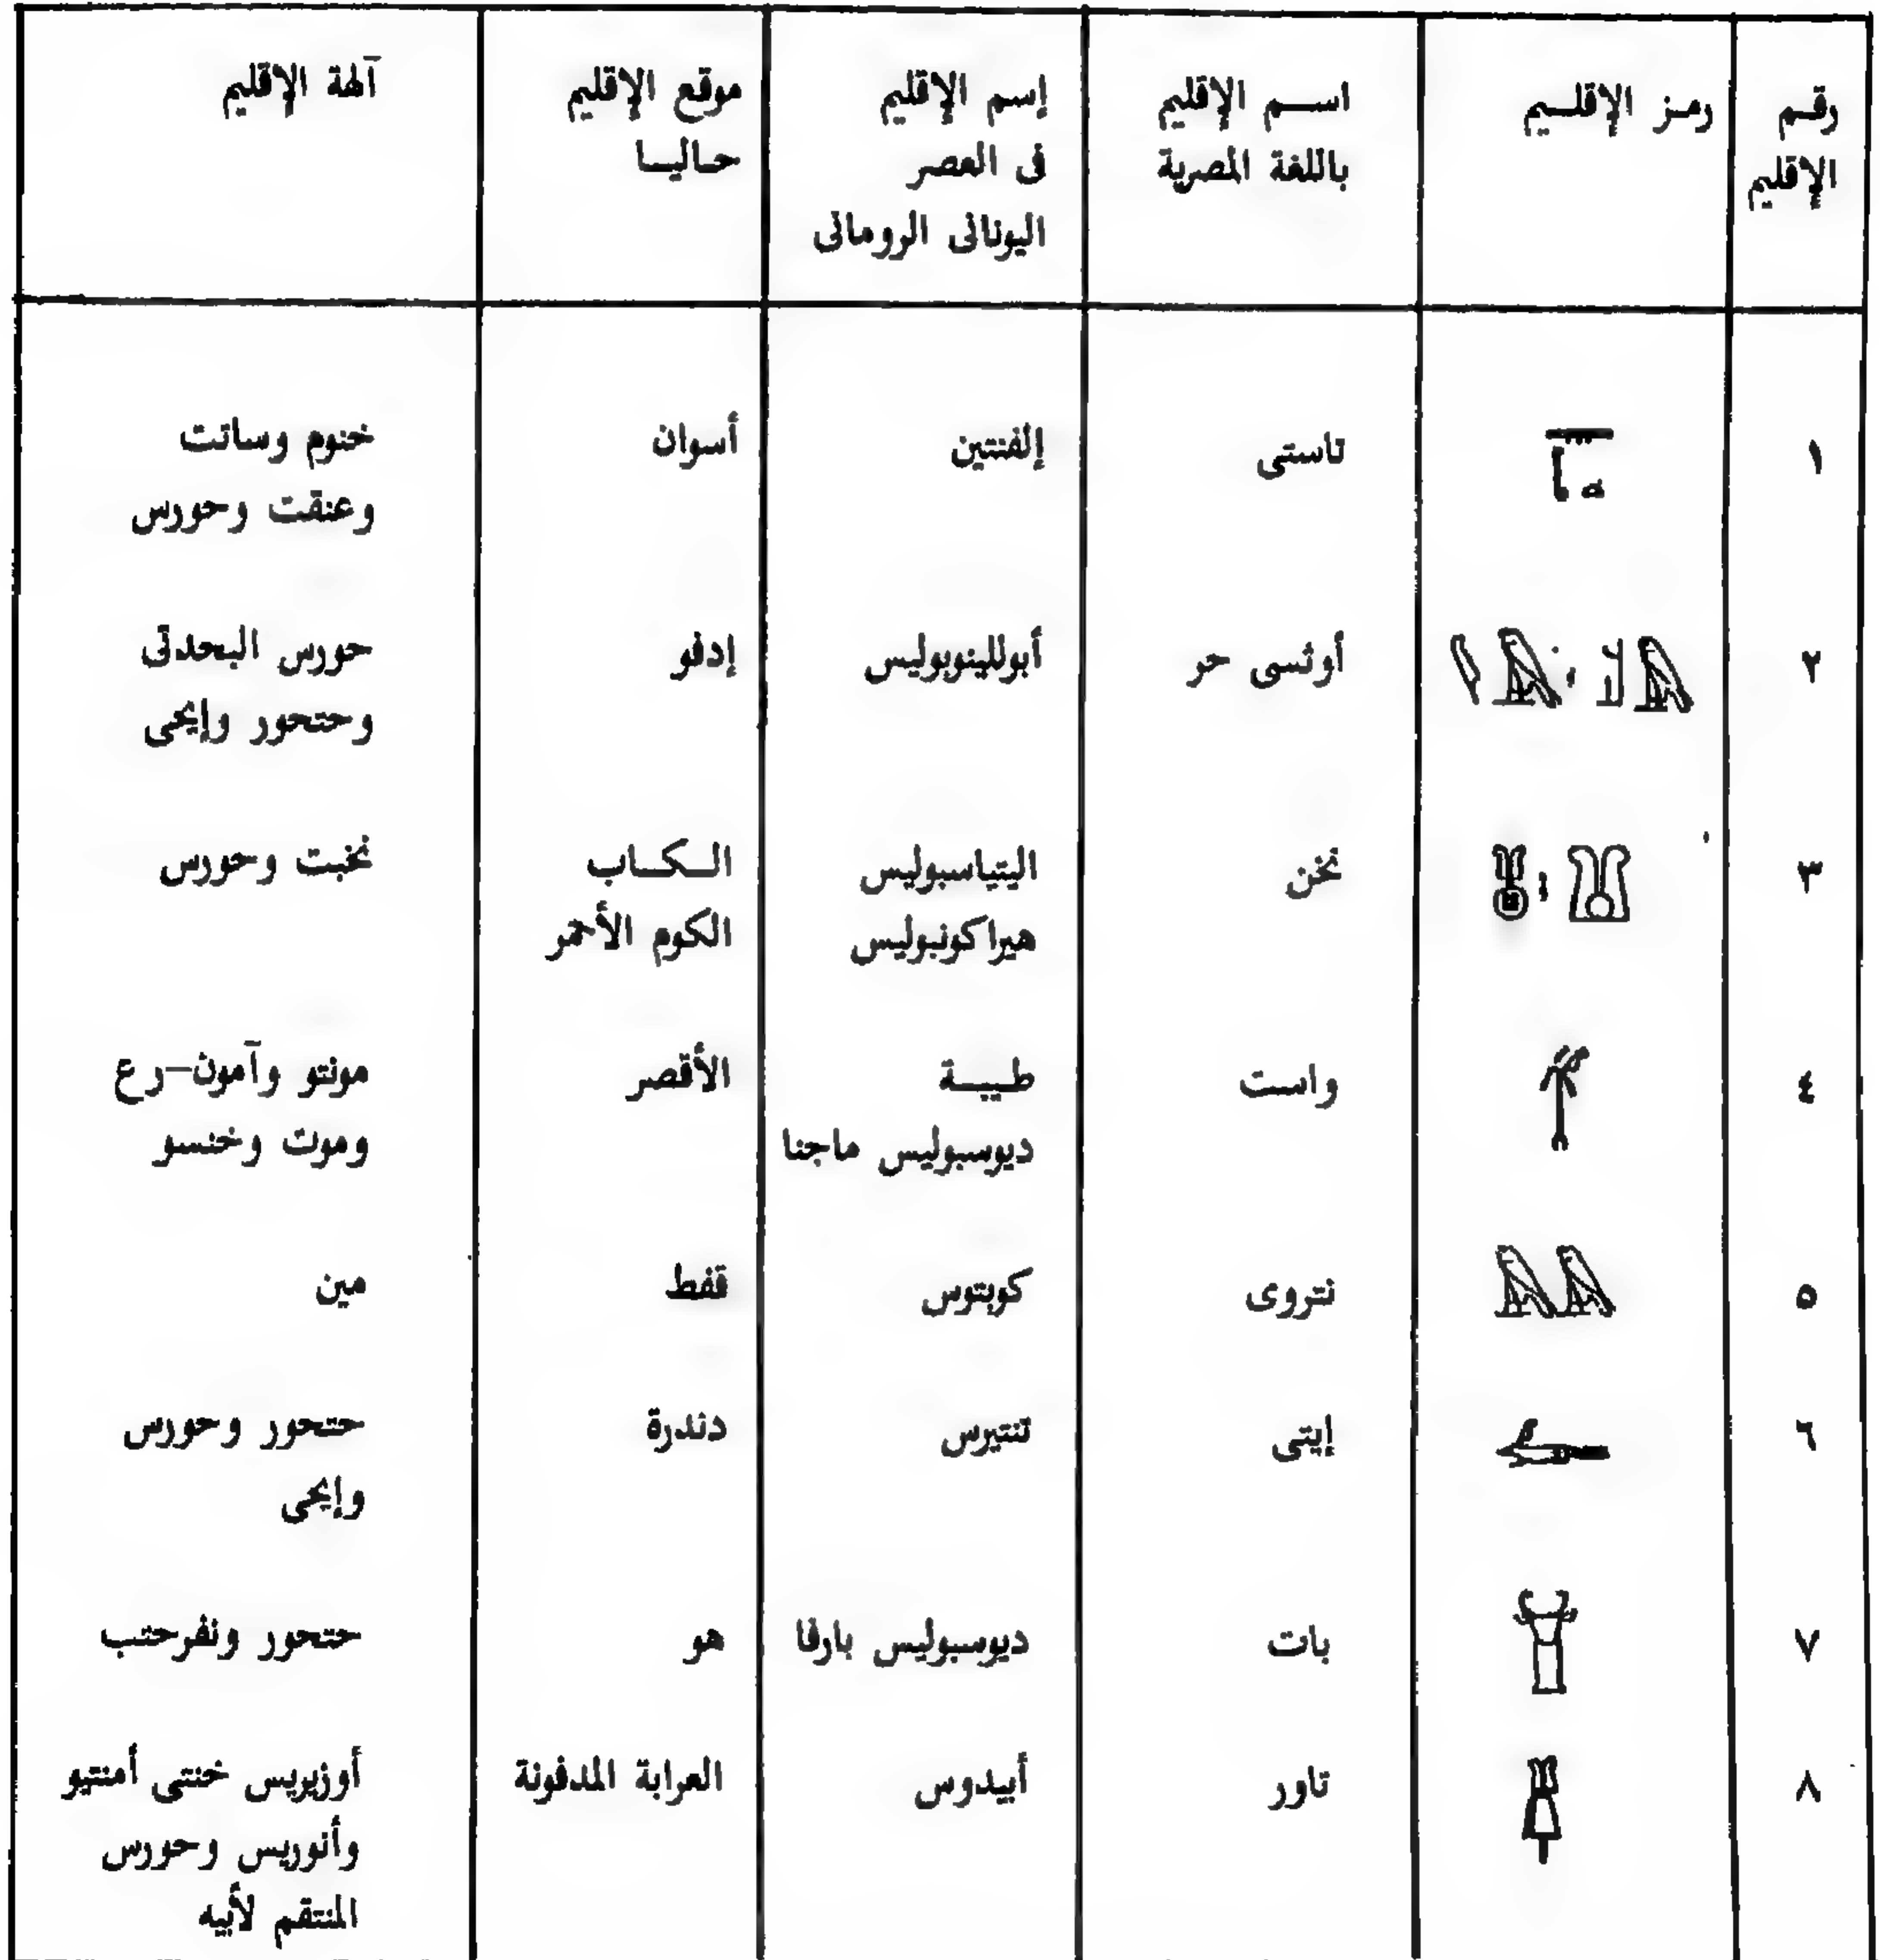 رقم الإقليم
رمز الإقليم
اسم الإقليم باللغة المصرية
إسم الإقليم فى العصر اليونانى الرومانى
موقع الإقليم حاليا
آلهة الإقليم
١ تاستى إلفنتين أسوان خنوم وساتت
وعنقت وحورس
٢ أوثسى حر أبوللينوبوليس إدفو حورس البحدتى
وحتحور وإيحى
٣ نخن اليتياسبوليس الكاب نخبت وحورس
هيراكونبوليس الكوم الأحمر
٤ واست طيبة الأقصر مونتو وآمون-رع
ديوسبوليس ماجنا وموت وخنسو
٥ نتروى كوبتوس قفط مين
٦ إيتى تنتيرس دندرة حتحور وحورس
وإيحى
٧ بات ديوسبوليس بارفا هو حتحور ونفرحتب
٨ تاور أبيدوس العرابة المدفونة أوزيريس خنتى أمنتيو
وأنوريس وحورس
المنتقم لأبيه